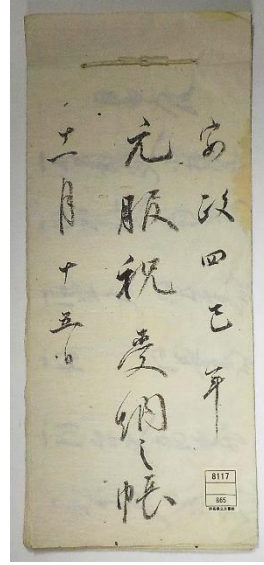 安政四巳年
元服祝受納之帳
十一月十五日
8117
665